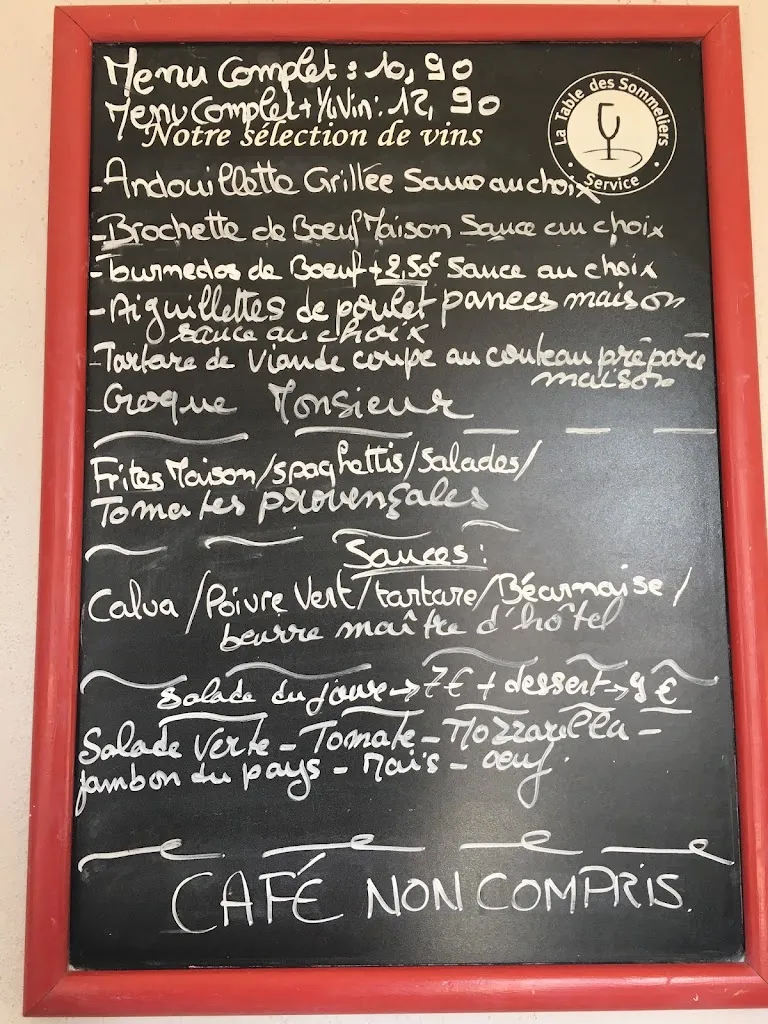 Menu Complet : 10,90
Menu Complet + 1/4 Vin : 12,90
Notre sélection de vins
La Table des Sommeliers
Service
- Andouillette Grillée Sauce au choix
- Brochette de Boeuf Maison Sauce au choix
- Tournedos de Boeuf + 2,50€ Sauce au choix
- Aiguillettes de poulet panees maison
sauce au choix
- Tartare de Viande coupe au couteau préparé
maison
- Croque Monsieur
Frites Maison / spaghettis / Salades /
Tomates provençales
Sauces :
Calva / Poivre Vert / tartare / Béarnaise /
beurre maître d'hôtel
Salade du jour → 7€ + dessert → 9€
Salade Verte - Tomate - Mozzarella -
jambon du pays - Maïs - oeuf.
CAFÉ NON COMPRIS.